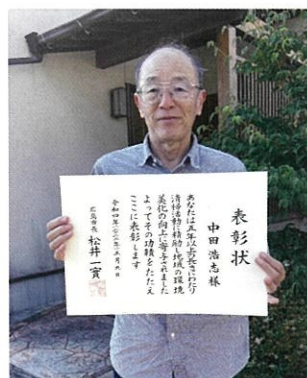 表彰状
中田浩志様
あなたは五年以上の長きにわたり
清掃活動に精励し地域の環境
美化の向上に寄与されました
よってその功績をたたえ
ここに表彰します
広島市長 松井一實